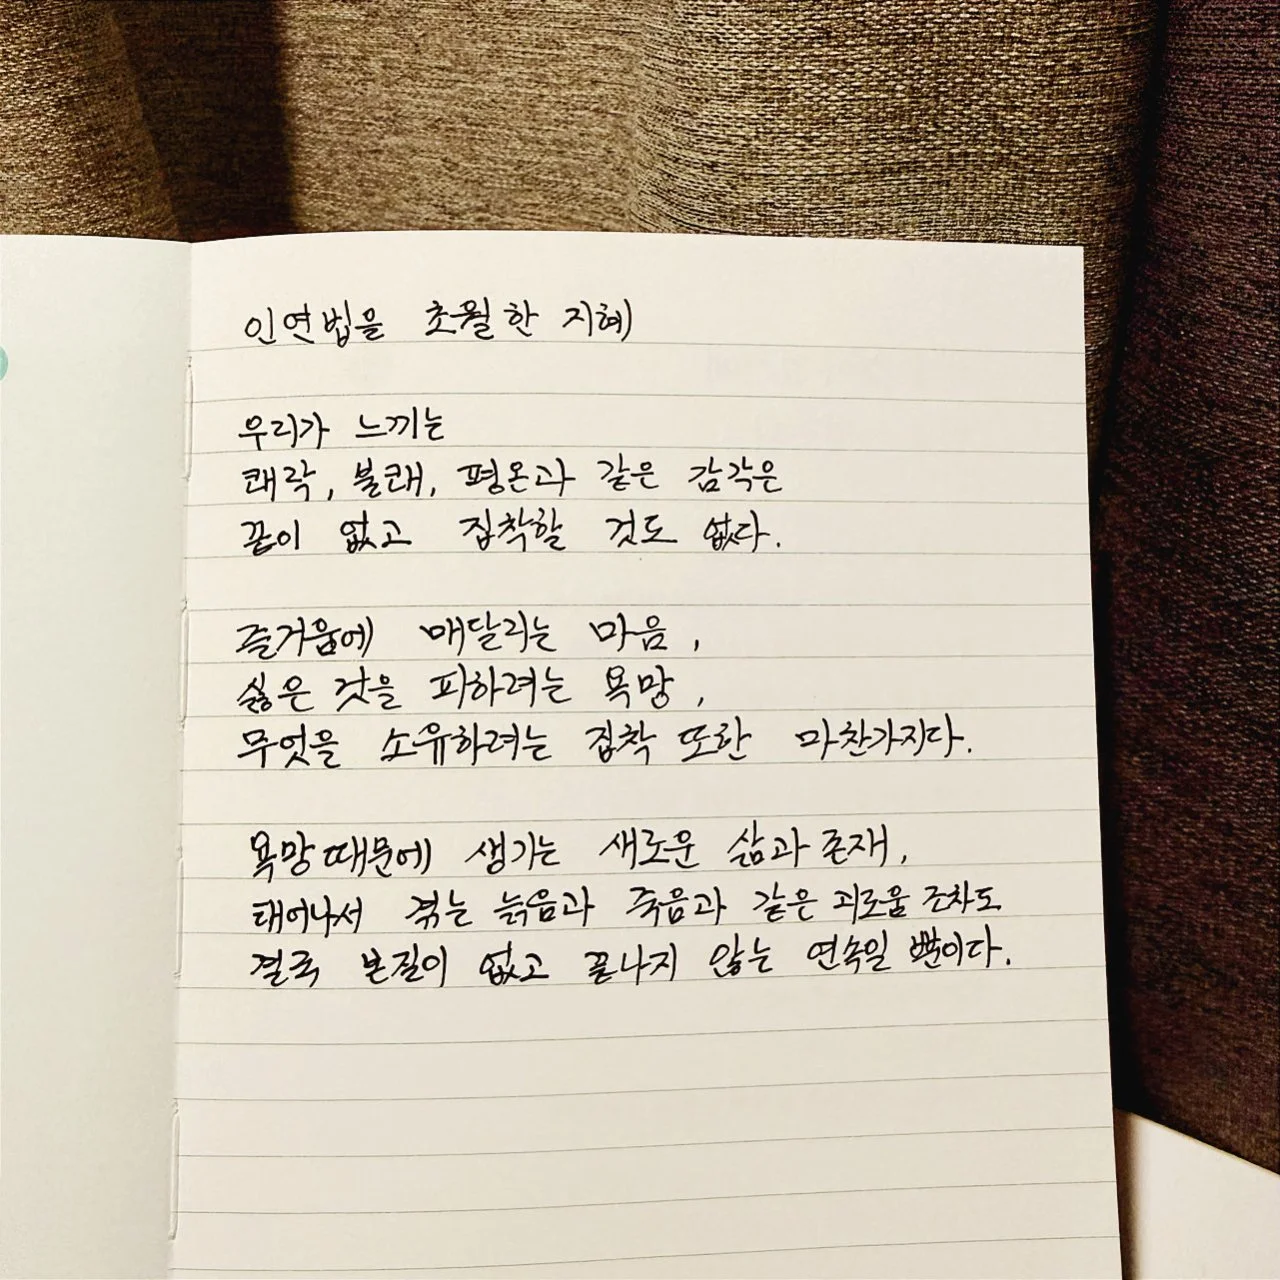 인연법을 초월한 지혜
우리가 느끼는
쾌락, 불쾌, 평온과 같은 감각은
끝이 없고 집착할 것도 없다.
즐거움에 매달리는 마음,
싫은 것을 피하려는 욕망,
무엇을 소유하려는 집착 또한 마찬가지다.
욕망때문에 생기는 새로운 삶과 존재,
태어나서 겪는 늙음과 죽음과 같은 괴로움 조차도
결국 본질이 없고 끝나지 않는 연속일 뿐이다.